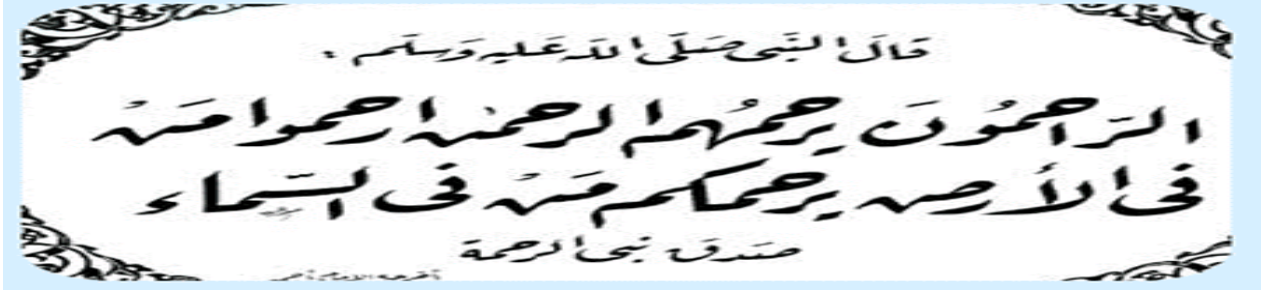 قَالَ النَّبِى صَلَّى اللّه عَلَيهِ وَسَلَّم :
الرّاحمُونَ يرحمُهم الرحمٰن ارحموا مَنْ
فى الأَرض يرحمكم مَنْ فى السَّماء
صَدق نبى الرحمة
أخرجه الإمام أحمد